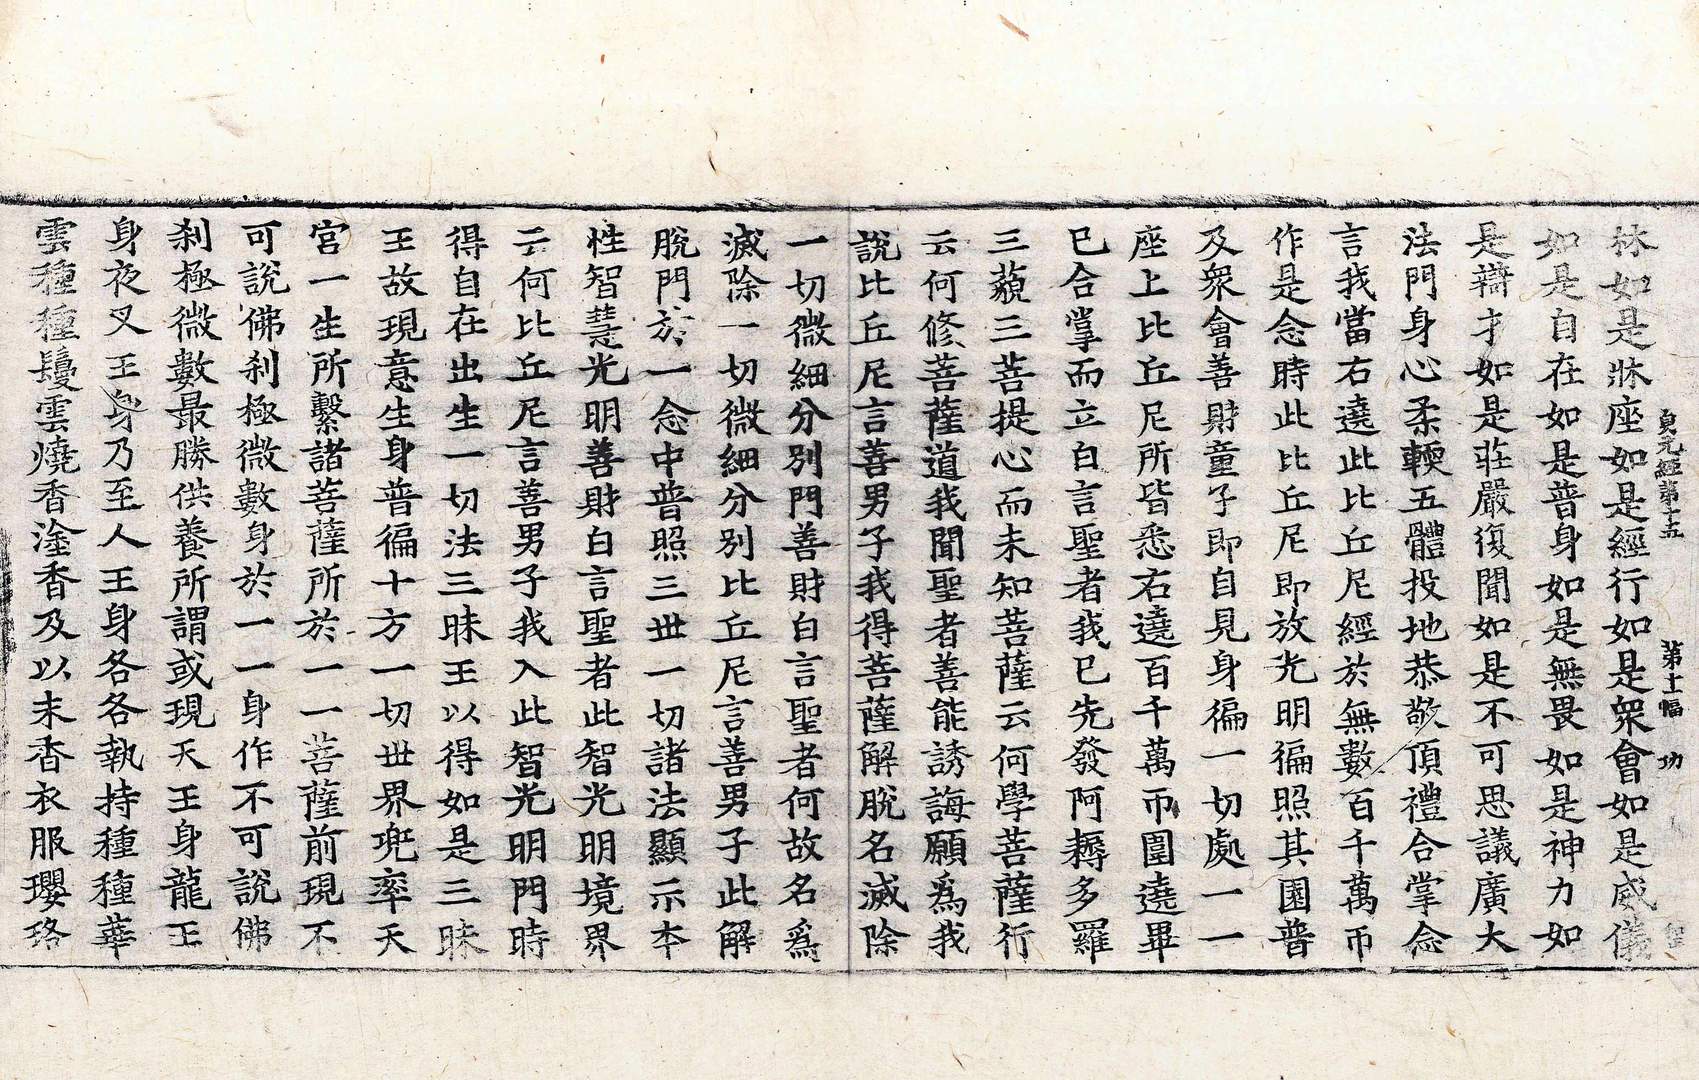 貞元經第十五　第十一幅　功
林如是牀座如是經行如是衆會如是威儀
如是自在如是普身如是無畏如是神力如
是辯才如是莊嚴復聞如是不可思議廣大
法門身心柔輭五體投地恭敬頂禮合掌念
言我當右遶此比丘尼經於無數百千萬帀
作是念時此比丘尼即放光明徧照其園普
及衆會善財童子即自見身徧一切處一一
座上比丘尼所皆悉右遶百千萬帀圍遶畢
已合掌而立白言聖者我已先發阿耨多羅
三藐三菩提心而未知菩薩云何學菩薩行
云何修菩薩道我聞聖者善能誘誨願爲我
說比丘尼言善男子我得菩薩解脫名滅除
一切微細分別門善財白言聖者何故名爲
滅除一切微細分別比丘尼言善男子此解
脫門於一念中普照三世一切諸法顯示本
性智慧光明善財白言聖者此智光明境界
云何比丘尼言善男子我入此智光明門時
得自在出生一切法三昧王以得如是三昧
王故現意生身普徧十方一切世界兜率天
宮一生所繫諸菩薩所於一一菩薩前現不
可說佛刹極微數身於一一身作不可說佛
刹極微數最勝供養所謂或現天王身龍王
身夜叉王身乃至人王身各各執持種種華
雲種種鬘雲燒香塗香及以末香衣服瓔珞